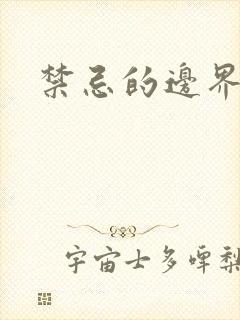 禁忌的邊界
宇宙士多啤梨